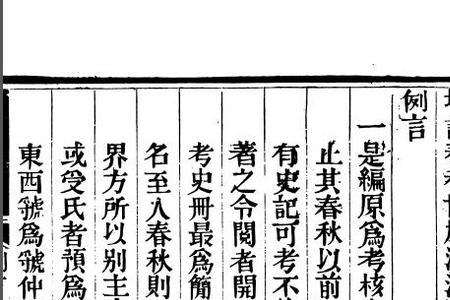 例言
一是編原爲考核
止其春秋以前
有史記可考不
著之令閱者開
考史冊最爲簡
名至入春秋則
界方所以别主
或受氏者預爲
東西虢爲虢仲